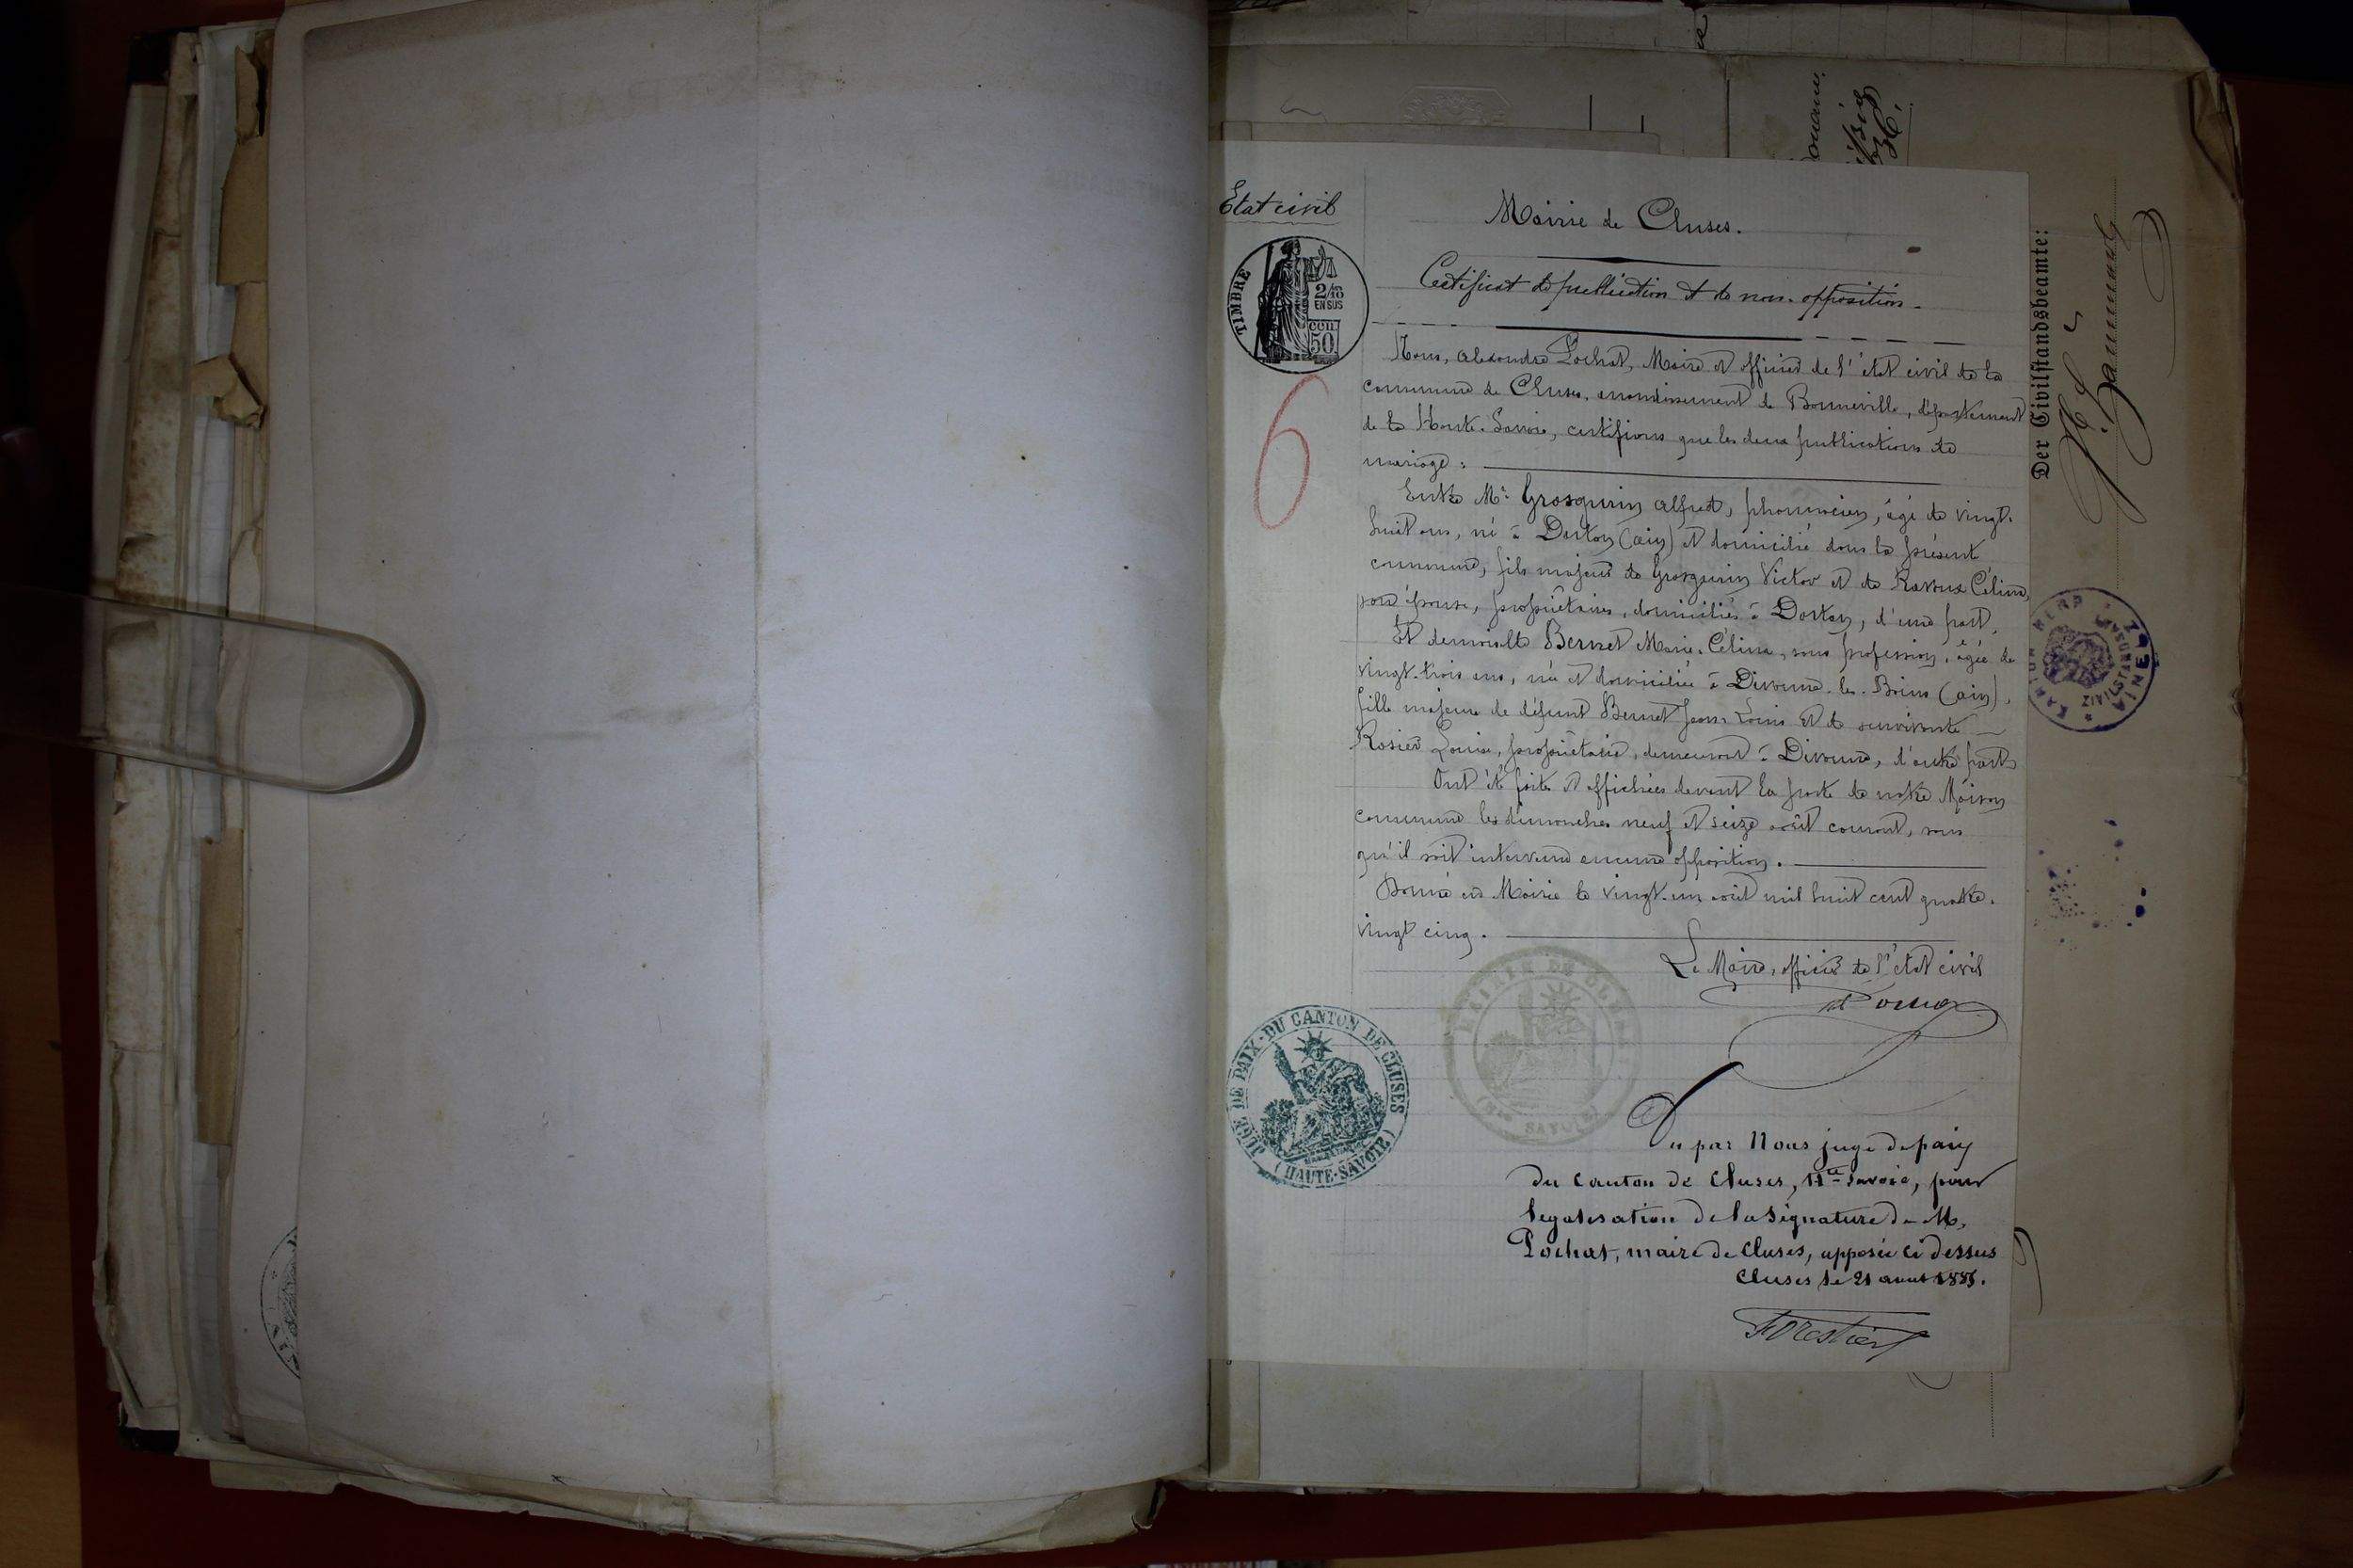 Etat civil
Mairie de Cluses.
TIMBRE
2/10
EN SUS
50
Certificat de publication et de non-opposition.
Nous, Alexandre Pochat, Maire et officier de l'état civil de la
commune de Cluses, arrondissement de Bonneville, département
de la Haute-Savoie, certifions que les deux publications de
mariage:
6
Entre Mr Grosgurin Alfred, pharmacien, âgé de vingt-
huit ans, né à Dortan (Ain) et domicilié dans la présente
commune, fils majeur de Grosgurin Victor et de Ravoux Célina,
son épouse, propriétaires, domiciliés à Dortan, d'une part,
Et demoiselle Bernet Marie-Célina, sans profession, âgée de
vingt-trois ans, née et domiciliée à Divonne-les-Bains (Ain),
fille majeure de défunt Bernet Jean-Louis et de survivante
Rosier Louise, propriétaire, demeurant à Divonne, d'autre part
Ont été faites et affichées devant la porte de notre Maison
commune les dimanches neuf et seize août courant, sans
qu'il soit intervenu aucune opposition.
Donné en Mairie le vingt-un août mil huit cent quatre-
vingt cinq.
Le Maire, officier de l'état civil
MAIRIE DE CLUSES
(Hte SAVOIE)
JUGE DE PAIX DU CANTON DE CLUSES
(HAUTE-SAVOIE)
Vu par Nous juge de paix
du canton de Cluses, Hte Savoie, pour
legalisation de la signature de M.
Pochat, maire de Cluses, apposée ci dessus
Cluses le 21 aout 1885.
Forestier
Der Civilstandsbeamte: